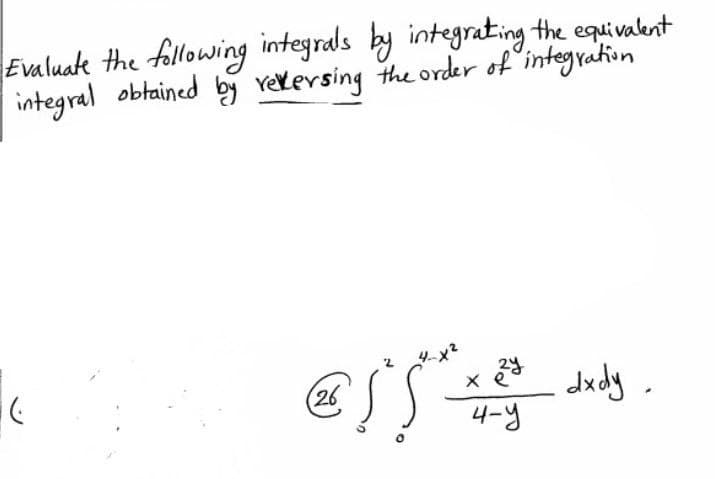 Evaluate the following integrals by integrating the equivalent
integral obtained by reversing the order of integration
(26) ∫₀² ∫₀^(4-x²) x e^(2y) / (4-y) dxdy .